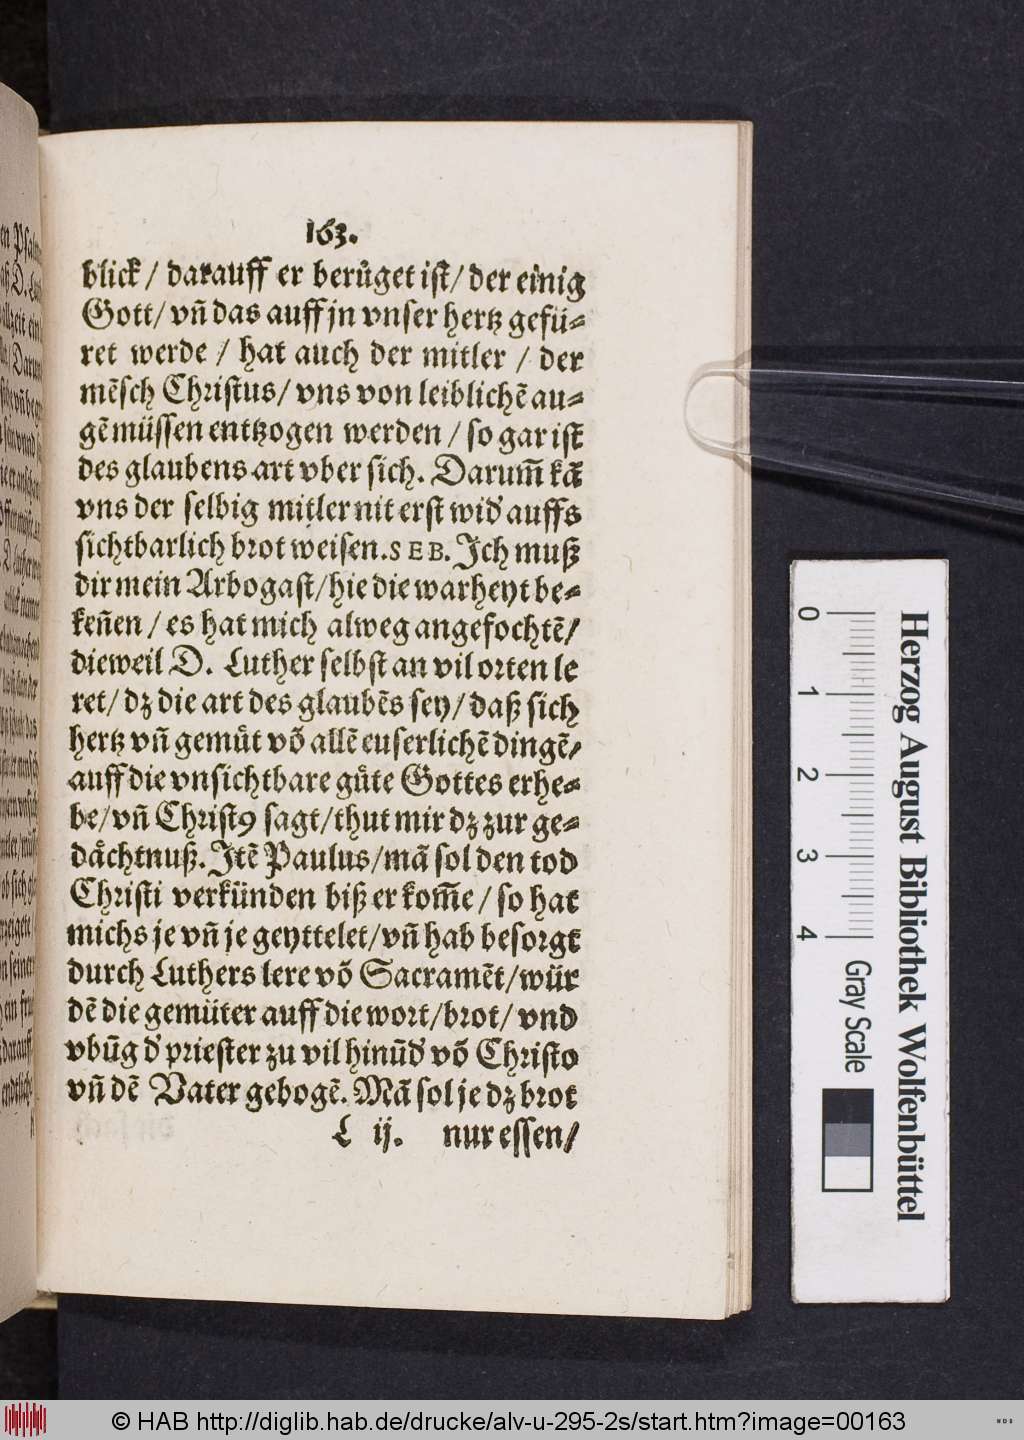 163.
blick / darauff er berůget ist / der einig
Gott / vñ das auff jn vnser hertz gefü⸗
ret werde / hat auch der mitler / der
mẽsch Christus / vns von leiblichẽ au⸗
gẽ müssen entzogen werden / so gar ist
des glaubens art vber sich. Darum̃ kã
vns der selbig mitler nit erst wid' auffs
sichtbarlich brot weisen. SEB. Jch muß
dir mein Arbogast / hie die warheyt be⸗
keñen / es hat mich alweg angefochtẽ /
dieweil D. Luther selbst an vil orten le
ret / dz die art des glaubẽs sey / daß sich
hertz vñ gemůt võ allẽ euserlichẽ dingẽ /
auff die vnsichtbare gůte Gottes erhe⸗
be / vñ Christꝰ sagt / thut mir dz zur ge⸗
dåchtnuß. Jtẽ Paulus / mã sol den tod
Christi verkünden biß er kom̃e / so hat
michs je vñ je geyttelet / vñ hab besorgt
durch Luthers lere võ Sacramẽt / wür
dẽ die gemüter auff die wort / brot / vnd
vbũg d' priester zu vil hinũd' võ Christo
vñ dẽ Vater gebogẽ. Mã sol je dz brot
L ij. nur essen /
0 1 2 3 4
Gray Scale
Herzog August Bibliothek Wolfenbüttel
© HAB http://diglib.hab.de/drucke/alv-u-295-2s/start.htm?image=00163